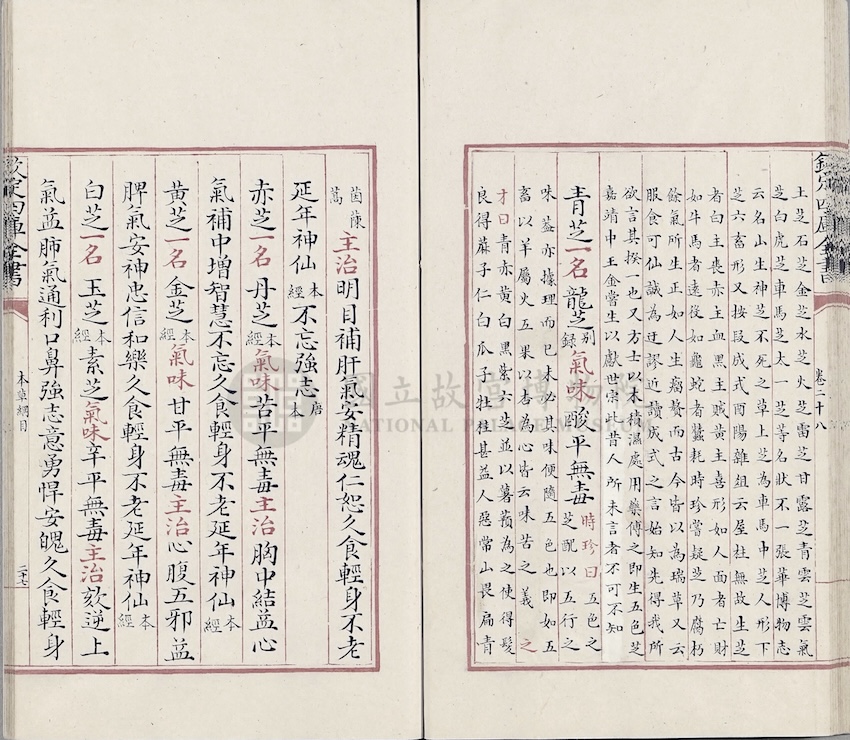 欽定四庫全書
卷二十八
土芝石芝金芝水芝火芝雷芝甘露芝青雲芝雲氣
芝白虎芝車馬芝太一芝等名狀不一張華博物志
云名山生神芝不死之草上芝為車馬中芝人形下
芝六畜形又按段成式酉陽雜俎云屋柱無故生芝
者白主喪赤主血黑主賊黃主喜形如人面者亡財
如牛馬者遠役如龜蛇者蠶耗時珍嘗疑芝乃腐朽
餘氣所生正如人生瘤贅而古今皆以為瑞草又云
服食可仙誠為迂謬近讀成式之言始知先得我所
欲言其揆一也又方士以木積濕處用藥傅之即生五色芝
嘉靖中王金嘗生以獻世宗此昔人所未言者不可不知
青芝一名龍芝别錄氣味酸平無毒時珍曰五色之芝配以五行之
味葢亦據理而已未必其味便隨五色也即如五
畜以羊屬火五果以杏為心皆云味苦之義之
才曰青赤黃白黑紫六芝並以薯蕷為之使得髮
良得麻子仁白瓜子牡桂甚益人惡常山畏扁青
茵蔯蒿主治明目補肝氣安精魂仁恕久食輕身不老
延年神仙本經不忘強志唐本
赤芝一名丹芝本經氣味苦平無毒主治胸中結益心
氣補中增智慧不忘久食輕身不老延年神仙本經
黃芝一名金芝本經氣味甘平無毒主治心腹五邪益
脾氣安神忠信和樂久食輕身不老延年神仙本經
白芝一名玉芝本經素芝氣味辛平無毒主治欬逆上
氣益肺氣通利口鼻強志意勇悍安魄久食輕身
欽定四庫全書
本草綱目
二十七
國立故宮博物院
NATIONAL PALACE MUSEUM